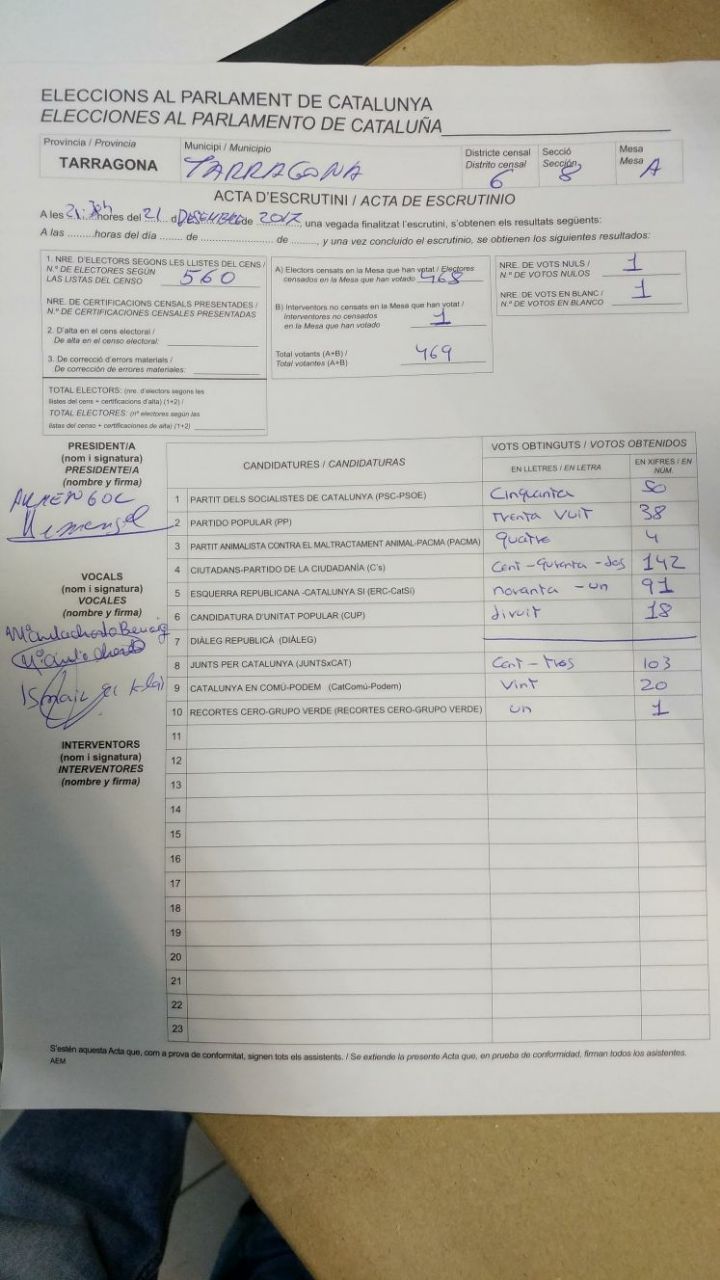 ELECCIONS AL PARLAMENT DE CATALUNYA
ELECCIONES AL PARLAMENTO DE CATALUÑA
Provincia / Provincia
TARRAGONA
Municipi / Municipio
TARRAGONA
Districte censal
Distrito censal
6
Secció
Sección
8
Mesa
Mesa
A
ACTA D'ESCRUTINI / ACTA DE ESCRUTINIO
A les 21:30h hores del 21 d DESEMBRE de 2017, una vegada finalitzat l'escrutini, s'obtenen els resultats següents:
A las .........horas del día ....... de ............................. de ........, y una vez concluido el escrutinio, se obtienen los siguientes resultados:
1. NRE. D'ELECTORS SEGONS LES LLISTES DEL CENS /
N.º DE ELECTORES SEGÚN
LAS LISTAS DEL CENSO 560
NRE. DE CERTIFICACIONS CENSALS PRESENTADES /
N.º DE CERTIFICACIONES CENSALES PRESENTADAS
2. D'alta en el cens electoral /
De alta en el censo electoral:
3. De correcció d'errors materials /
De corrección de errores materiales:
TOTAL ELECTORS: (nre. d'electors segons les
llistes del cens + certificacions d'alta) (1+2) /
TOTAL ELECTORES: (nº electores según las
listas del censo + certificaciones de alta) (1+2)
A) Electors censats en la Mesa que han votat / Electores
censados en la Mesa que han votado 468
B) Interventors no censats en la Mesa que han votat /
Interventores no censados
en la Mesa que han votado 1
Total votants (A+B) /
Total votantes (A+B) 469
NRE. DE VOTS NULS /
N.º DE VOTOS NULOS 1
NRE. DE VOTS EN BLANC /
N.º DE VOTOS EN BLANCO 1
PRESIDENT/A
(nom i signatura)
PRESIDENTE/A
(nombre y firma)
VOCALS
(nom i signatura)
VOCALES
(nombre y firma)
INTERVENTORS
(nom i signatura)
INTERVENTORES
(nombre y firma)
CANDIDATURES / CANDIDATURAS
VOTS OBTINGUTS / VOTOS OBTENIDOS
EN LLETRES / EN LETRA
EN XIFRES / EN NÚM.
1 PARTIT DELS SOCIALISTES DE CATALUNYA (PSC-PSOE) Cinquanta 50
2 PARTIDO POPULAR (PP) trenta vuit 38
3 PARTIT ANIMALISTA CONTRA EL MALTRACTAMENT ANIMAL-PACMA (PACMA) quatre 4
4 CIUTADANS-PARTIDO DE LA CIUDADANÍA (C's) Cent-quranta-dos 142
5 ESQUERRA REPUBLICANA -CATALUNYA SI (ERC-CatSi) noranta-un 91
6 CANDIDATURA D'UNITAT POPULAR (CUP) divuit 18
7 DIÀLEG REPUBLICÀ (DIÀLEG)
8 JUNTS PER CATALUNYA (JUNTSxCAT) Cent-tres 103
9 CATALUNYA EN COMÚ-PODEM (CatComú-Podem) Vint 20
10 RECORTES CERO-GRUPO VERDE (RECORTES CERO-GRUPO VERDE) un 1
11
12
13
14
15
16
17
18
19
20
21
22
23
S'estén aquesta Acta que, com a prova de conformitat, signen tots els assistents. / Se extiende la presente Acta que, en prueba de conformidad, firman todos los asistentes.
AEM